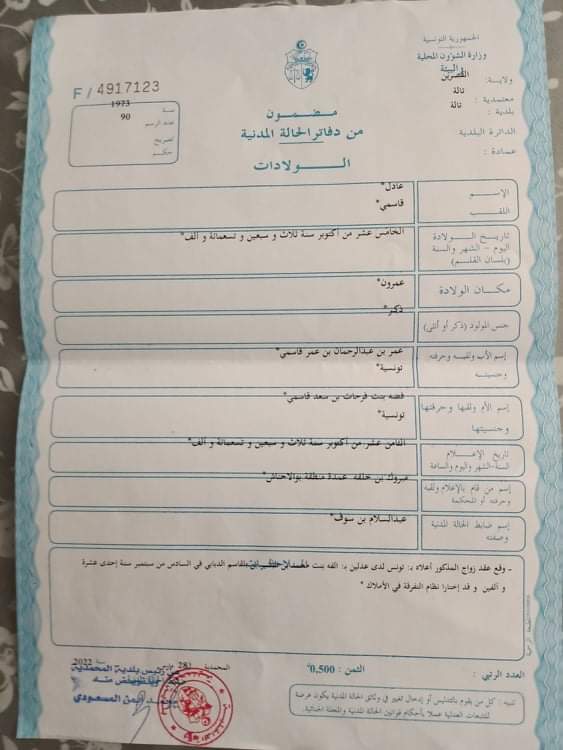 الجمهورية التونسية
وزارة الشؤون المحلية
و البيئة
ولاية: القصرين
معتمدية: تالة
بلدية: تالة
الدائرة البلدية
عمادة:
F / 4917123
سنة 1973
عدد الرسم 90
تصريح
حكم
مضمون
من دفاتر الحالة المدنية
الولادات
الإسم عادل*
اللقب قاسمي*
تاريخ الولادة الخامس عشر من أكتوبر سنة ثلاث و سبعين و تسعمائة و ألف*
اليوم - الشهر والسنة
(بلسان القلم)
مكان الولادة عمرون*
جنس المولود (ذكر أو أنثى) ذكر*
إسم الأب ولقبه وحرفته عمر بن عبدالرحمان بن عمر قاسمي*
وجنسيته تونسية*
إسم الأم ولقبها وحرفتها فضه بنت فرحات بن سعد قاسمي*
وجنسيتها تونسية*
تاريخ الإعلام الثامن عشر من أكتوبر سنة ثلاث و سبعين و تسعمائة و ألف*
السنة-الشهر واليوم والساعة
إسم من قام بالإعلام ولقبه مبروك بن خلفه عمدة منطقة بوالاحناش*
وحرفته أو المحكمة
إسم ضابط الحالة المدنية عبدالسلام بن سوف*
وصفته
ـ وقع عقد زواج المذكور أعلاه بـ: تونس لدى عدلين بـ: الفه بنت بلقاسم الديابي في السادس من سبتمبر سنة إحدى عشرة
و ألفين و قد إختارا نظام التفرقة في الأملاك *
العدد الرتبي:
الثمن: 0,500
المحمدية 28 سنة 2022
رئيس بلدية المحمدية
أيمن المسعودي
تنبيه: كل من يقوم بالتدليس أو إدخال تغيير في وثائق الحالة المدنية يكون عرضة
للتتبعات العدلية عملا بأحكام قوانين الحالة المدنية والمجلة الجنائية.